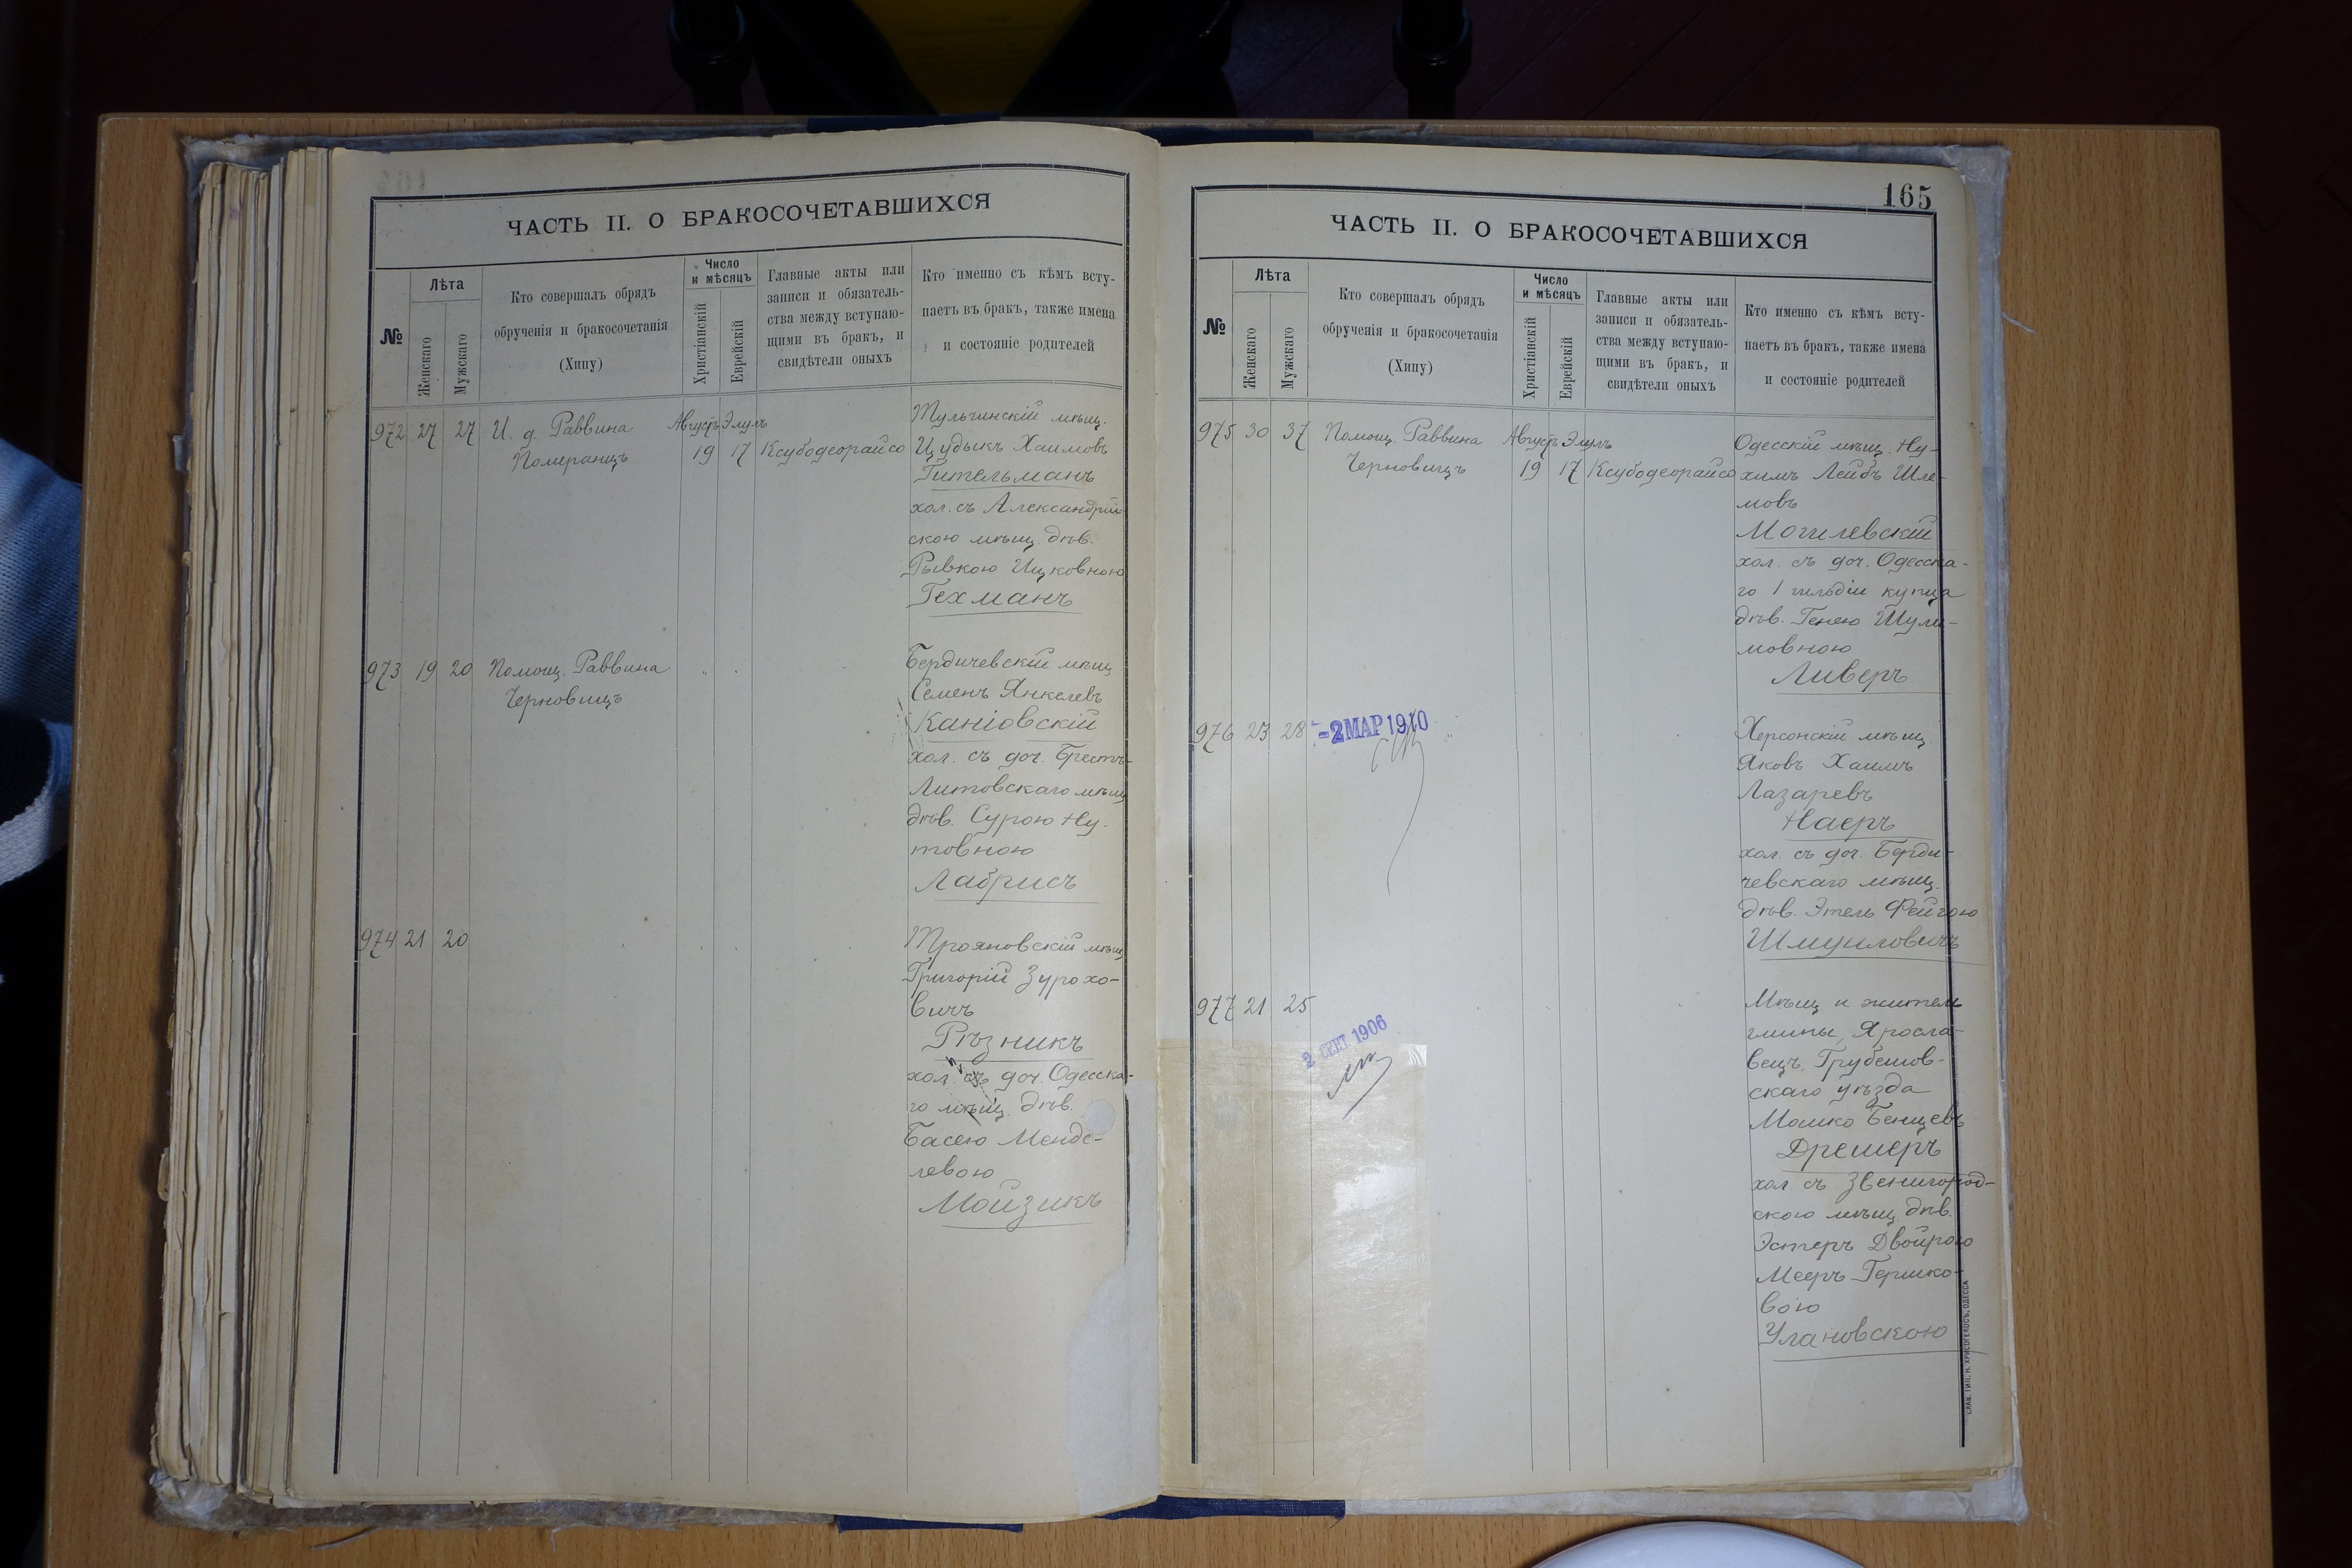 ЧАСТЬ II. О БРАКОСОЧЕТАВШИХСЯ
№
Лѣта
Женскаго
Мужскаго
Кто совершалъ обрядъ
обрученія и бракосочетанія
(Хипу)
Число
и мѣсяцъ
Христіанскій
Еврейскій
Главные акты или
записи и обязатель-
ства между вступаю-
щими въ бракъ, и
свидѣтели оныхъ
Кто именно съ кѣмъ всту-
паетъ въ бракъ, также имена
и состояніе родителей
972 27 27 И. д. Раввина
Померанцъ
Августъ Элулъ
19 17 Ксубодеорайсо
Тульчинскій мѣщ.
Цудыкъ Хаимовъ
Гительманъ
хол. съ Александрій-
скою мѣщ. дѣв.
Рывкою Ицковною
Гехманъ
973 19 20 Помощ. Раввина
Черновицъ
" "
Бердичевскій мѣщ
Семенъ Янкелевъ
Каніовскій
хол. съ доч. Брестъ-
Литовскаго мѣщ
дѣв. Сурою Ну-
товною
Лабрисъ
974 21 20
Трояновскій мѣщ
Григорій Зурохо-
вичъ
Рѣзникъ
хол. съ доч. Одесска-
го мѣщ. дѣв.
Басею Менде-
левою
Мойзикъ
165
ЧАСТЬ II. О БРАКОСОЧЕТАВШИХСЯ
№
Лѣта
Женскаго
Мужскаго
Кто совершалъ обрядъ
обрученія и бракосочетанія
(Хипу)
Число
и мѣсяцъ
Христіанскій
Еврейскій
Главные акты или
записи и обязатель-
ства между вступаю-
щими въ бракъ, и
свидѣтели оныхъ
Кто именно съ кѣмъ всту-
паетъ въ бракъ, также имена
и состояніе родителей
975 30 37 Помощ. Раввина
Черновицъ
Августъ Элулъ
19 17 Ксубодеорайсо
Одесскій мѣщ. Ну-
химъ Лейбъ Шле-
мовъ
Могилевскій
хол. съ доч. Одесска-
го 1 гильдіи купца
дѣв. Генею Шули-
мовною
Ливеръ
976 23 28
-2 МАР 1910
Херсонскій мѣщ
Яковъ Хаимъ
Лазаревъ
Наеръ
хол. съ доч. Берди-
чевскаго мѣщ.
дѣв. Этель Фейгою
Шмуиловичъ
977 21 25
2 СЕНТ 1906
Мѣщ. и житель
гмины, Яросла-
вецъ, Грубешов-
скаго уѣзда
Мошко Бенцевъ
Дрешеръ
хол. съ Звенигород-
скою мѣщ. дѣв.
Эстеръ Двойрою
Мееръ-Гершко-
вою
Улановскою
СЛАВ. ТИП. Н. ХРИСОГЕЛОСЪ, ОДЕССА